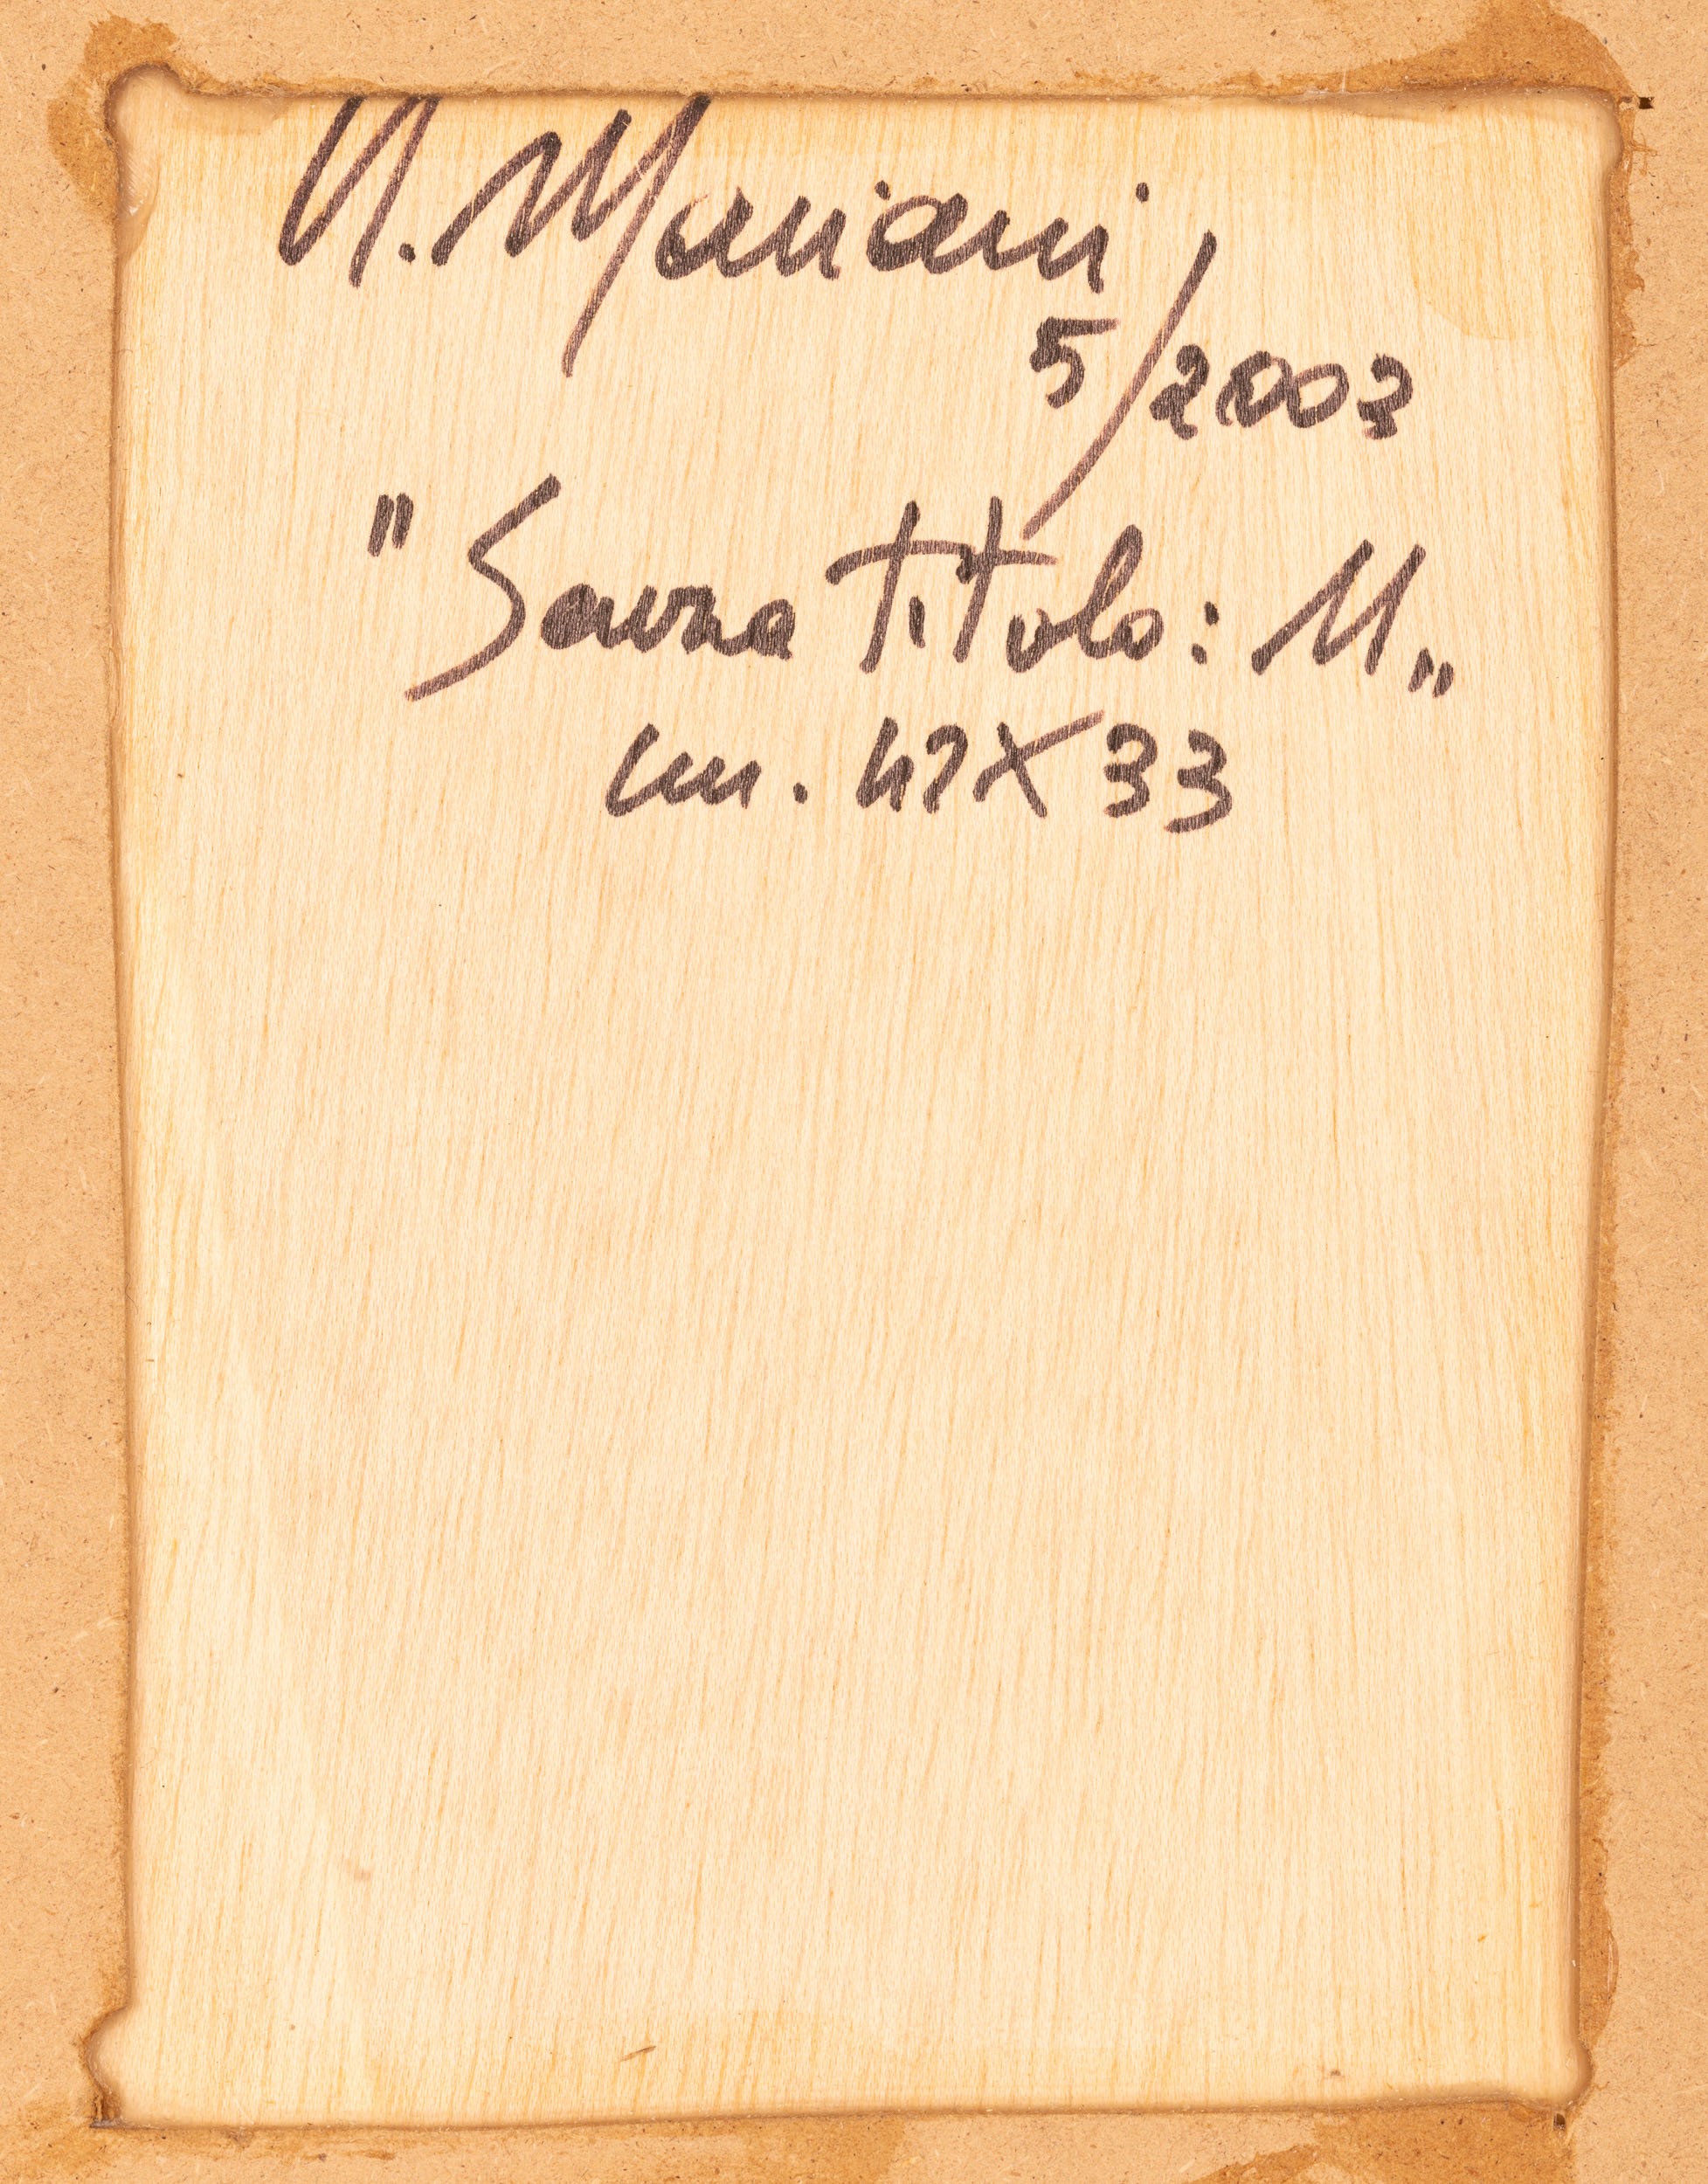 U. Mariani
5/2003
"Senza titolo: M"
cm. 42X33